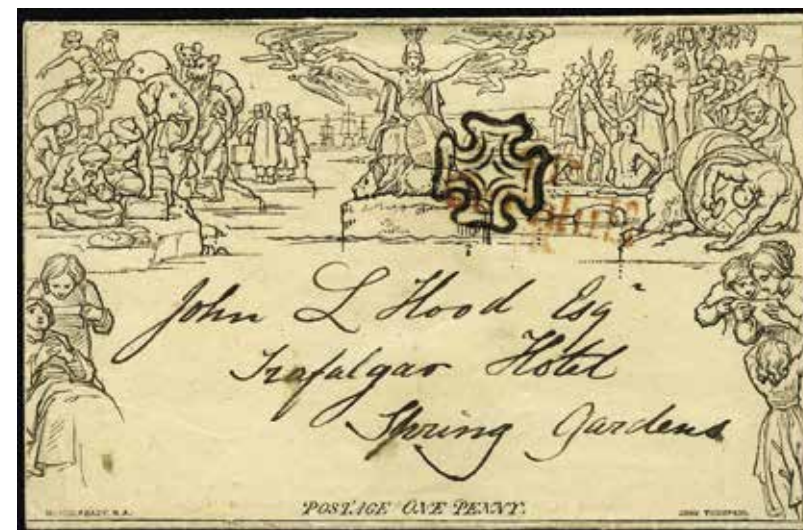 John L Hood Esqr
Trafalgar Hotel
Spring Gardens
POSTAGE ONE PENNY.
JOHN THOMPSON.